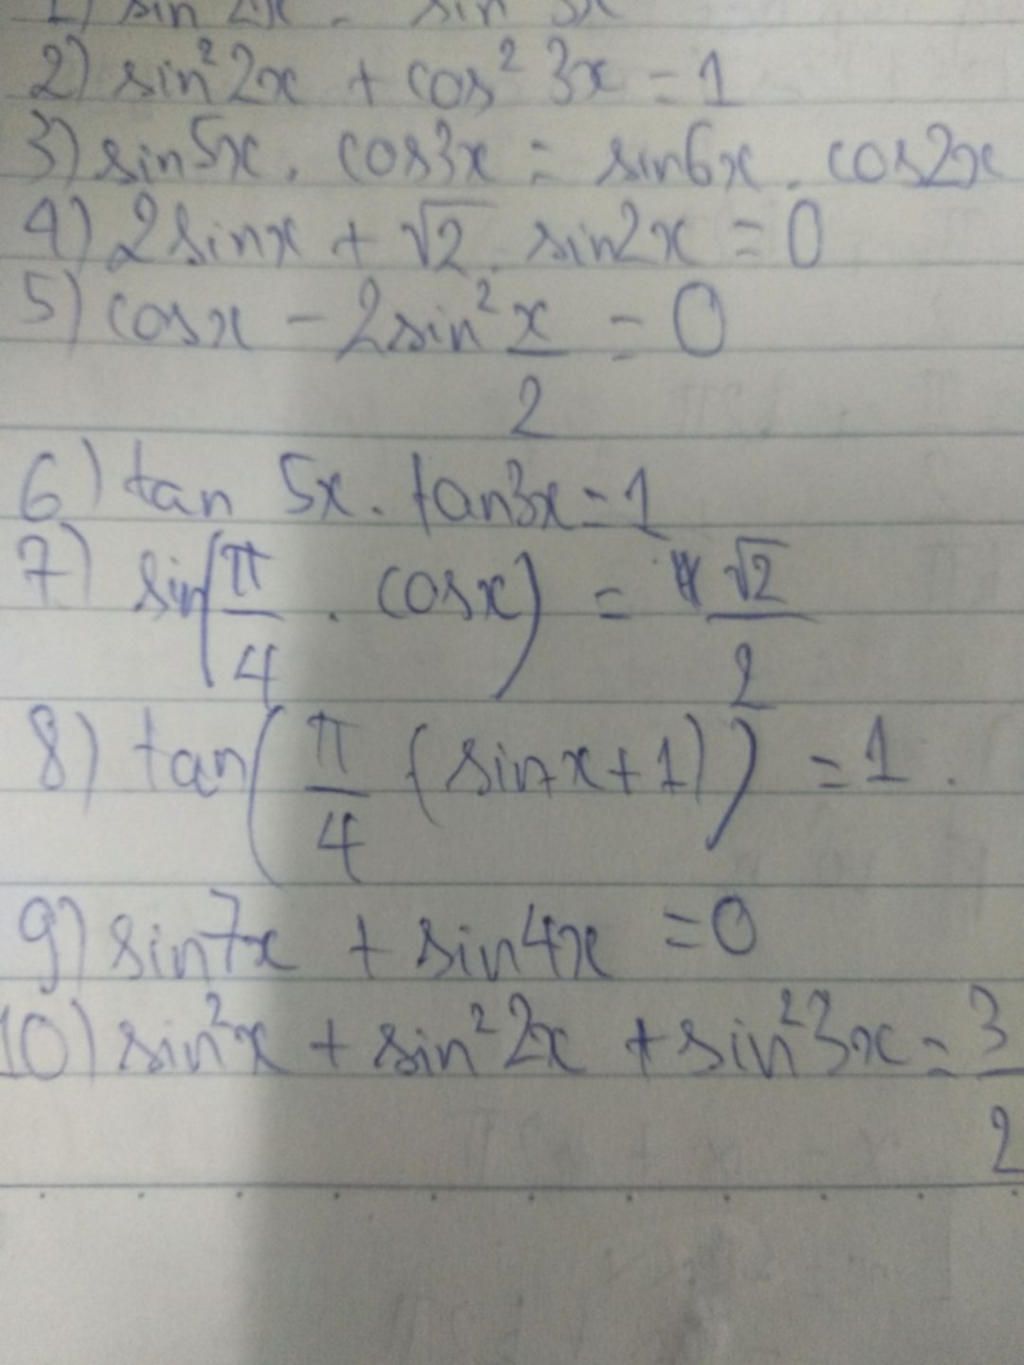 2) sin²2x + cos²3x = 1
3) sin5x . cos3x = sin6x . cos2x
4) 2sinx + √2 . sin2x = 0
5) cosx - 2sin² x/2 = 0
6) tan 5x . tan3x = 1
7) sin(π/4 . cosx) = √2/2
8) tan(π/4 (sinx + 1)) = 1 .
9) sin7x + sin4x = 0
10) sin²x + sin²2x + sin²3x = 3/2